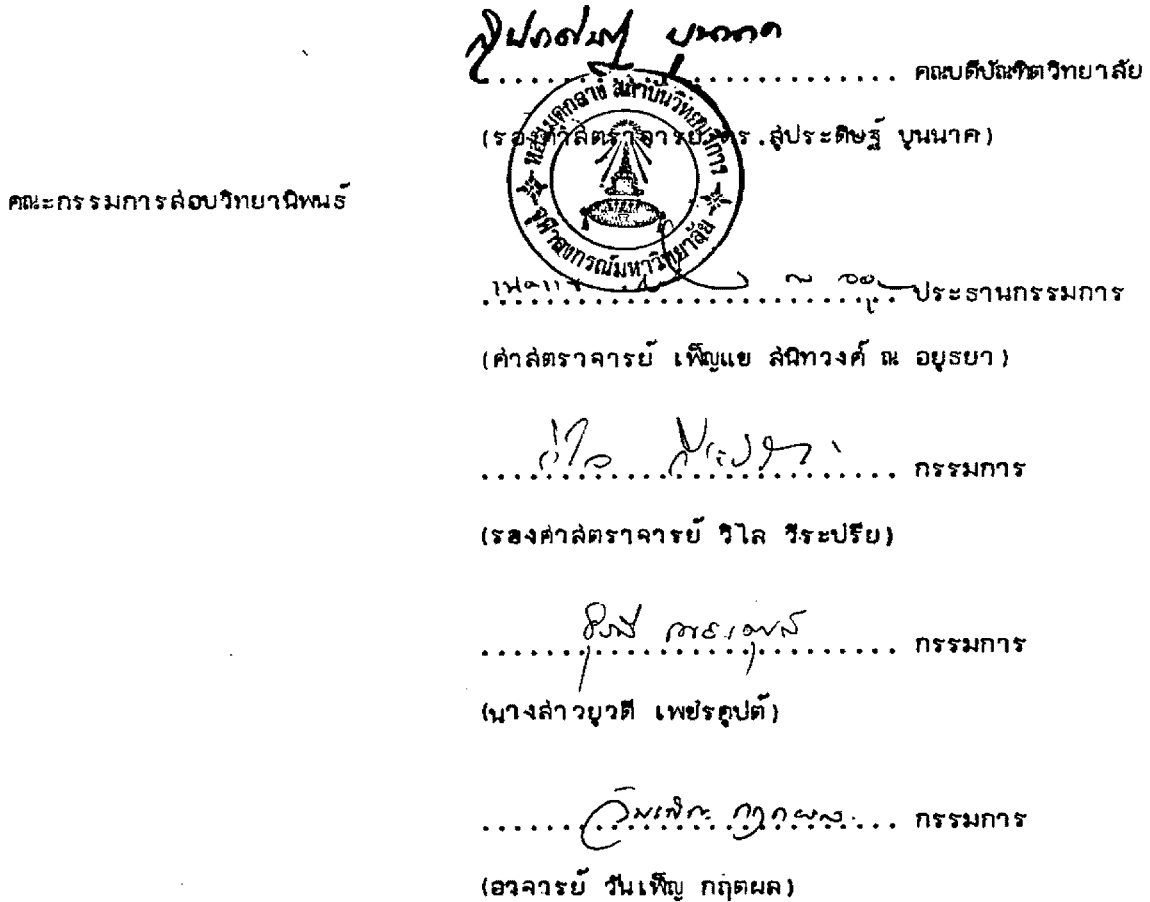 สุประดิษฐ์ บุนนาค
........................................ คณบดีบัณฑิตวิทยาลัย
(รองศาสตราจารย์ ดร.สุประดิษฐ์ บุนนาค)
หอสมุดกลาง สถาบันวิทยบริการ
จุฬาลงกรณ์มหาวิทยาลัย
คณะกรรมการสอบวิทยานิพนธ์
........................................ ประธานกรรมการ
(ศาสตราจารย์ เพ็ญแข สนิทวงศ์ ณ อยุธยา)
........................................ กรรมการ
(รองศาสตราจารย์ วิไล วีระปรีย)
........................................ กรรมการ
(นางสาวยุวดี เพชรคุปต์)
วันเพ็ญ กฤตผล
........................................ กรรมการ
(อาจารย์ วันเพ็ญ กฤตผล)